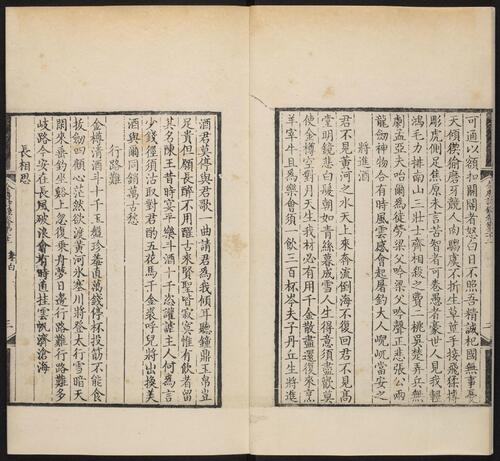 可通以額扣關閽者怒白日不照吾精誠杞國無事憂
天傾猰貐磨牙競人肉騶虞不折生草莖手接飛猱搏
彫虎側足焦原未言苦智者可卷愚者豪世人見我輕
鴻毛力排南山三壯士齊相殺之費二桃吳楚弄兵無
劇孟亞夫咍爾為徒勞梁父吟梁父吟聲正悲張公兩
龍劒神物合有時風雲感會起屠釣大人屼當安之
將進酒
君不見黃河之水天上來奔流倒海不復回君不見高
堂明鏡悲白髮朝如青絲暮成雪人生得意須盡歡莫
使金樽空對月天生我材必有用千金散盡還復來烹
羊宰牛且為樂會須一飲三百杯岑夫子丹丘生將進
酒君莫停與君歌一曲請君為我傾耳聽鐘鼎玉帛豈
足貴但願長醉不用醒古來聖賢皆寂寞惟有飲者留
其名陳王昔時宴平樂斗酒十千恣讙謔主人何為言
少錢徑須沽取對君酌五花馬千金裘呼兒將出換美
酒與爾同銷萬古愁
行路難
金樽清酒斗十千玉盤珍羞直萬錢停杯投筯不能食
拔劒四顧心茫然欲渡黃河冰塞川將登太行雪暗天
閑來垂釣坐谿上忽復乘舟夢日邊行路難行路難多
岐路今安在長風破浪會有時直挂雲帆濟滄海
長相思
李白
三